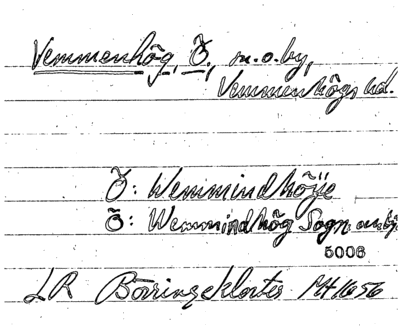 Vemmenhög, Ö, sn. o. by,
Vemmenhögs hd.
Ö: Wemmindhöÿe
Ö: Wemmindhög Sogn och bÿ
5006
LR Börringekloster 1656